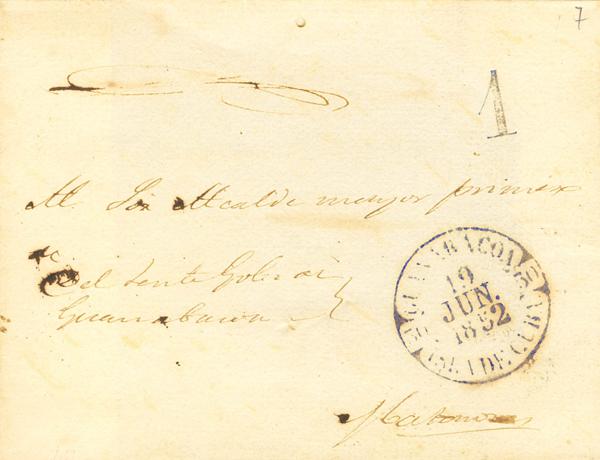 7
1
Al Sor Alcalde mayor primero
del Tente Gobor de
Guanabacoa
GUANABACOA
19
JUN.
1852
ISLA DE CUBA
Matanzas